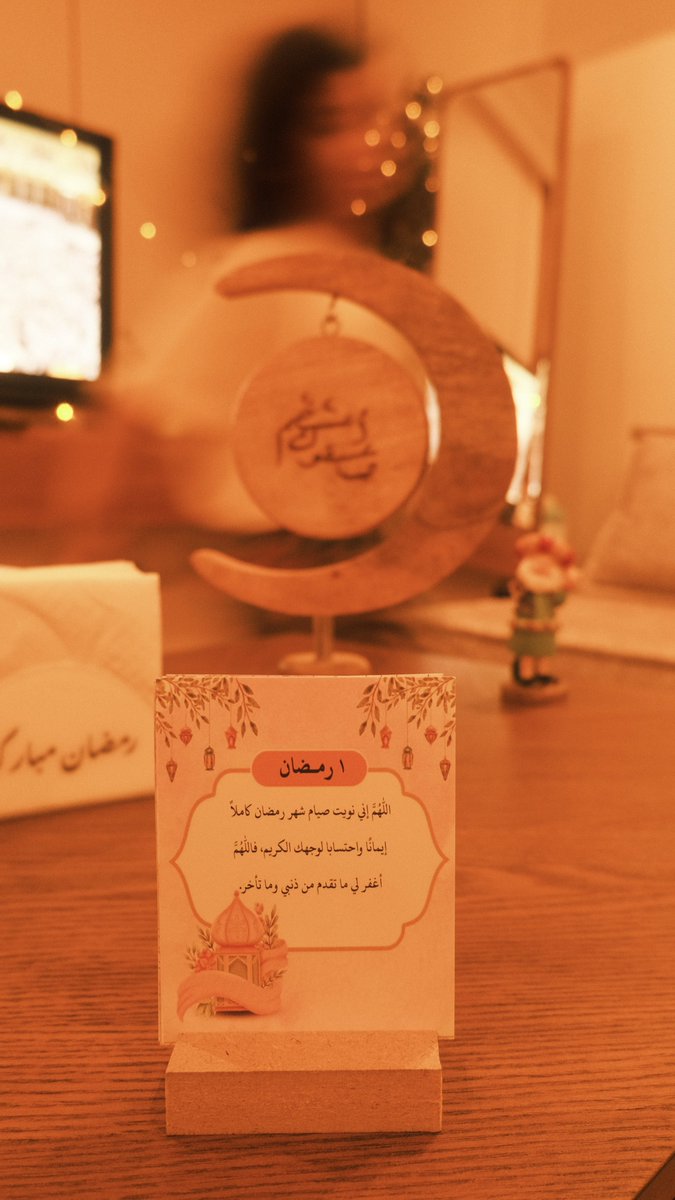 ١ رمـضان
اللّٰهُمَّ إني نويت صيام شهر رمضان كاملاً
إيمانًا واحتسابا لوجهك الكريم، فاللّٰهُمَّ
أغفر لي ما تقدم من ذنبي وما تأخر.
رمضان مبارك